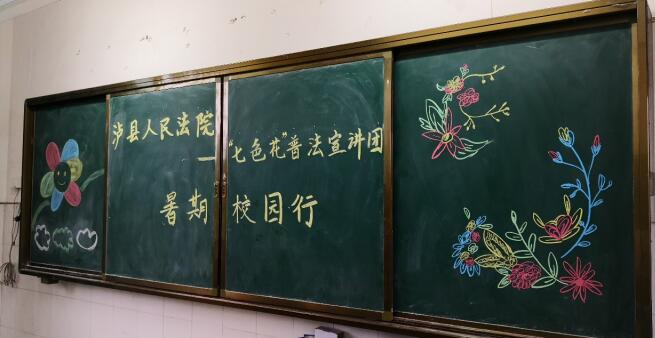 泸县人民法院
——“七色花”普法宣讲团
暑期校园行